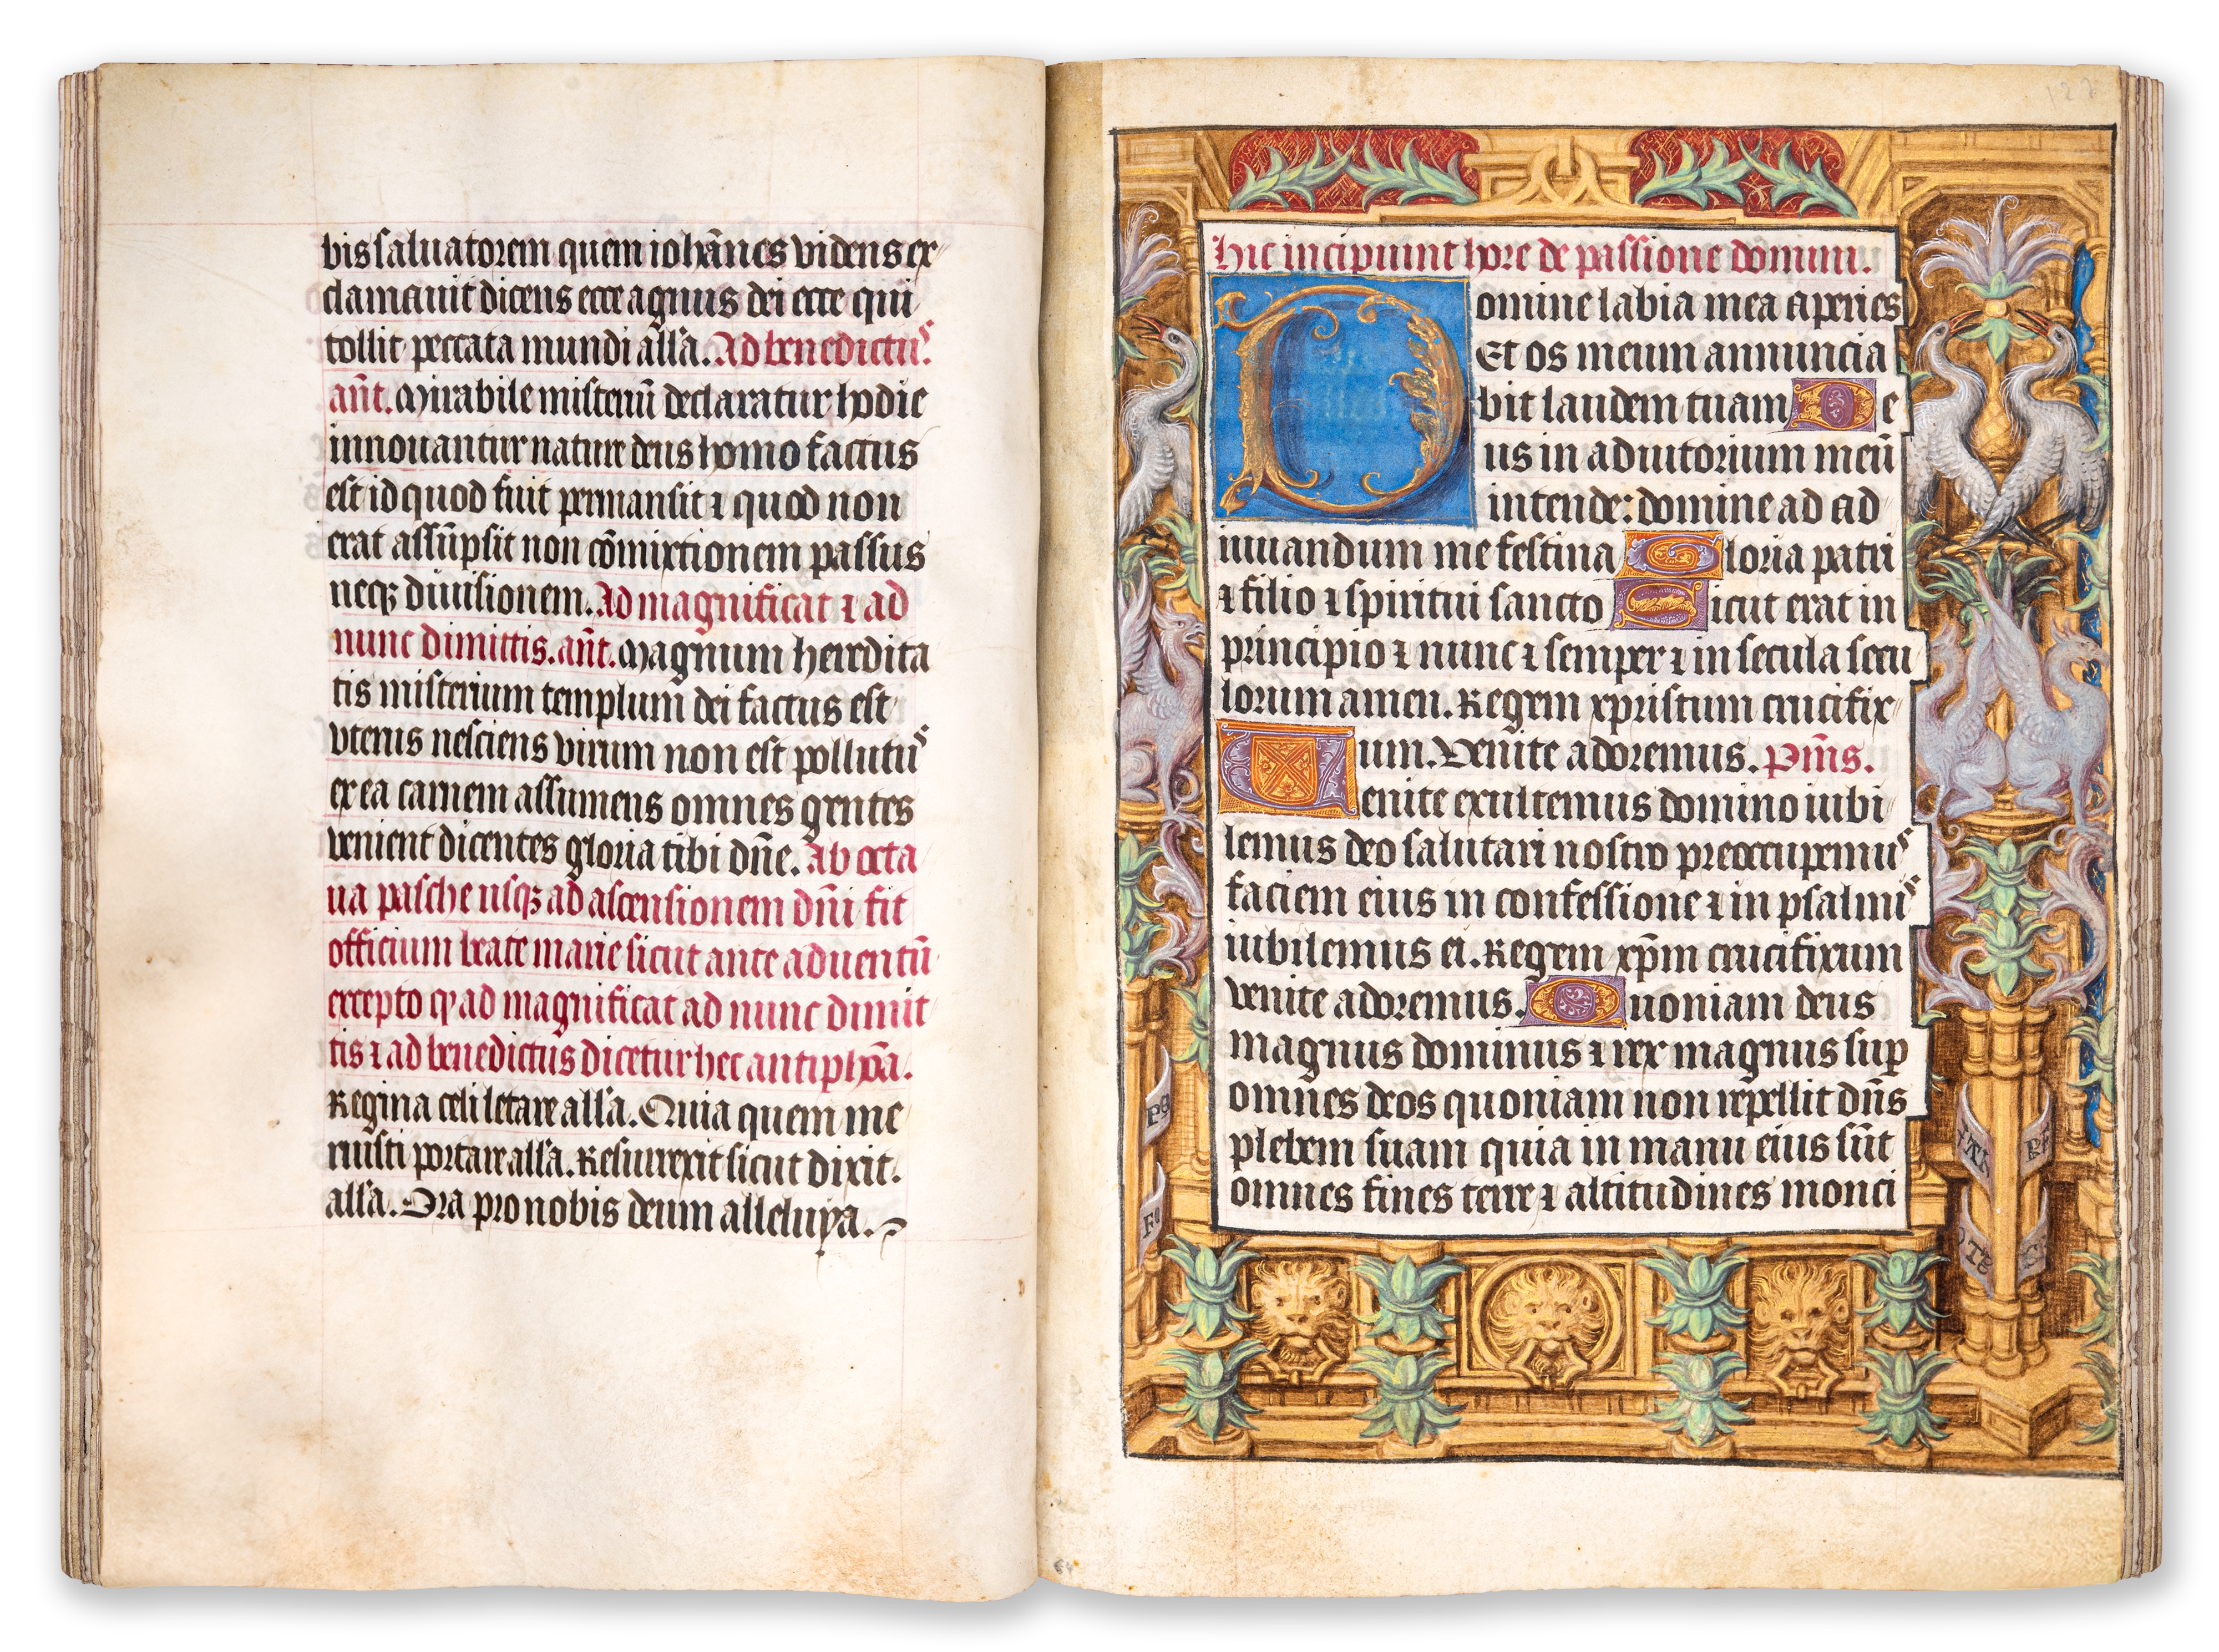 bis saluatorem quem iohānes videns ex
clamauit dicens ecce agnus dei ecce qui
tollit peccata mundi all'a. Ad benedictuˢ.
añt. Mirabile misteriū declaratur hodie
innouantur nature deus homo factus
est id quod fuit permansit ⁊ quod non
erat assūpsit non cōmixtionem passus
neqꝫ diuisionem. Ad magnificat ⁊ ad
nunc dimittis. añt. Magnum heredita
tis misterium templum dei factus est
vterus nesciens virum non est pollutuˢ
ex ea carnem assumens omnes gentes
venient dicentes gloria tibi dñe. Ab octa
ua pasche usqꝫ ad ascensionem dñi fit
officium beate marie sicut ante aduentū
excepto ꝙ ad magnificat ad nunc dimit
tis ⁊ ad benedictus dicetur hec antiphōa.
Regina celi letare all'a. Quia quem me
ruisti portare all'a. Resurrexit sicut dixit.
all'a. Ora pro nobis deum alleluya.
127
Hic incipiunt hore de passione domini.
Domine labia mea aperies
Et os meum annuncia
bit laudem tuam De
us in adiutorium meū
intende: domine ad ad
iuuandum me festina Gloria patri
⁊ filio ⁊ spiritui sancto Sicut erat in
principio ⁊ nunc ⁊ semper ⁊ in secula secu
lorum amen. Regem xpristum crucifix
um. Venite adoremus. Pm̄s.
Venite exultemus domino iubi
lemus deo salutari nostro preoccupemuˢ
faciem eius in confessione ⁊ in psalmiˢ
iubilemus ei. Regem xp̄m crucifixum
venite adoremus. Quoniam deus
magnus dominus ⁊ rex magnus suꝑ
omnes deos quoniam non repellit dñs
plebem suam quia in manu eius sūt
omnes fines terre ⁊ altitudines monci